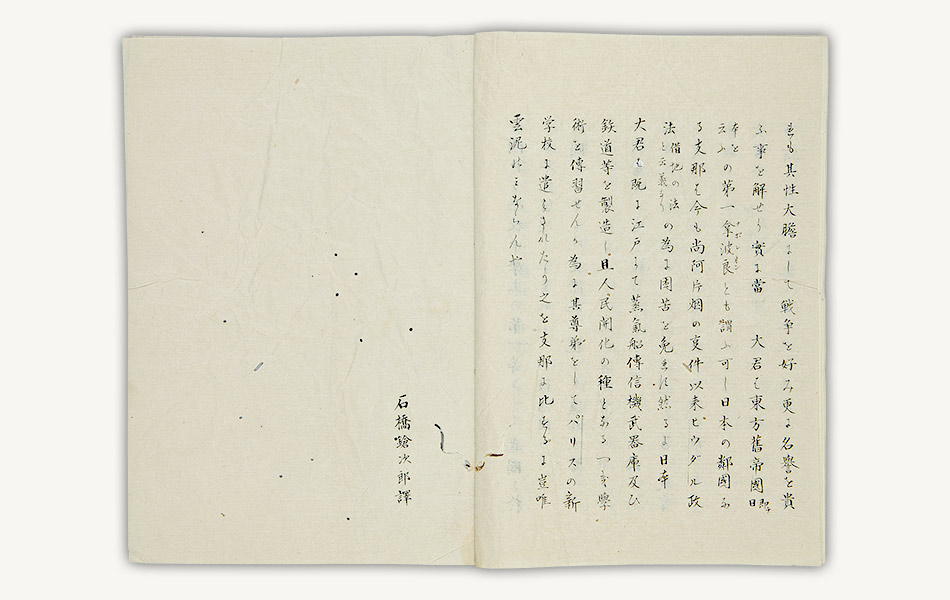 も其性大膽にして戦争を好み更に名誉を貴
ふ事を解せり實に當 大君は東方舊帝國 既日
本を云ふ の第一拿波良ナポレオンとも謂ふ可し日本の鄰國な
る支那は今も尚阿片烟の変件以来ヒウダル政
法 借地の法と云義なり の為に困苦を免ま〻然るに日本
大君は既に江戸にて蒸氣船傳信機武器庫及ひ
鉄道等を製造し且人民開化の種となる學
術を傳習せんか為に其尊弟をしてパリスの新
学校に遣はされたり之を支那に比するに豈唯
雲泥のミならんや
石橋鎗次郎譯